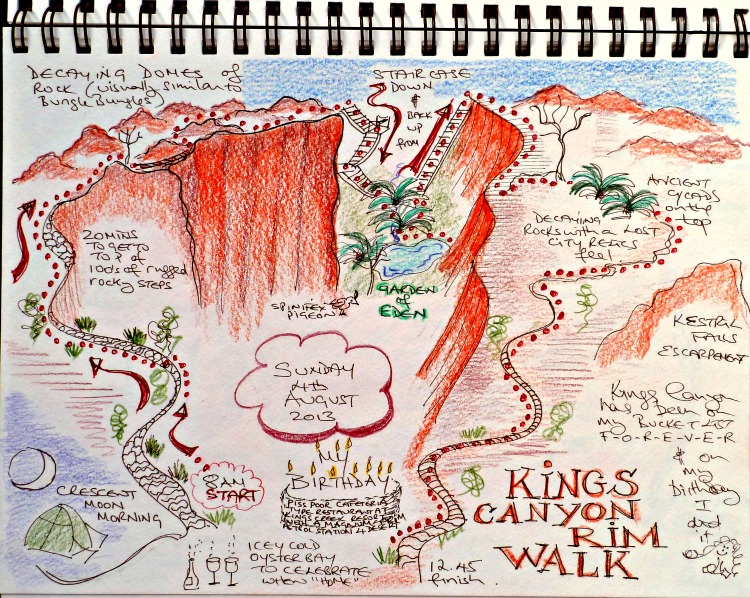 DECAYING DOMES of
ROCK (visually similar to
Bungle Bungles)
STAIRCASE
DOWN
&
BACK
UP
FROM
ANCIENT
CYCADS
on the
top
DECAYING
ROCKS with a LOST
CITY RELICS
feel
20 MINS
TO GET TO
TOP of
100's of rugged
rocky steps
SPINIFEX
PIGEON
GARDEN
of
EDEN
KESTREL
FALLS
ESCARPMENT
SUNDAY
4th
AUGUST
2013
Kings Canyon
has been on
my BUCKET LIST
F-O-R-E-V-E-R
& on
my
birthday
I
did
it
MY
BIRTHDAY
PISS POOR CAFETERIA
TYPE RESTAURANT AT
KINGS CREEK RESORT
A MAGNUM
PETROL STATION
8AM
START
CRESCENT
MOON
MORNING
KINGS
CANYON
RIM
WALK
ICEY COLD
OYSTER BAY
TO CELEBRATE
WHEN "HOME"
12.45
finish.